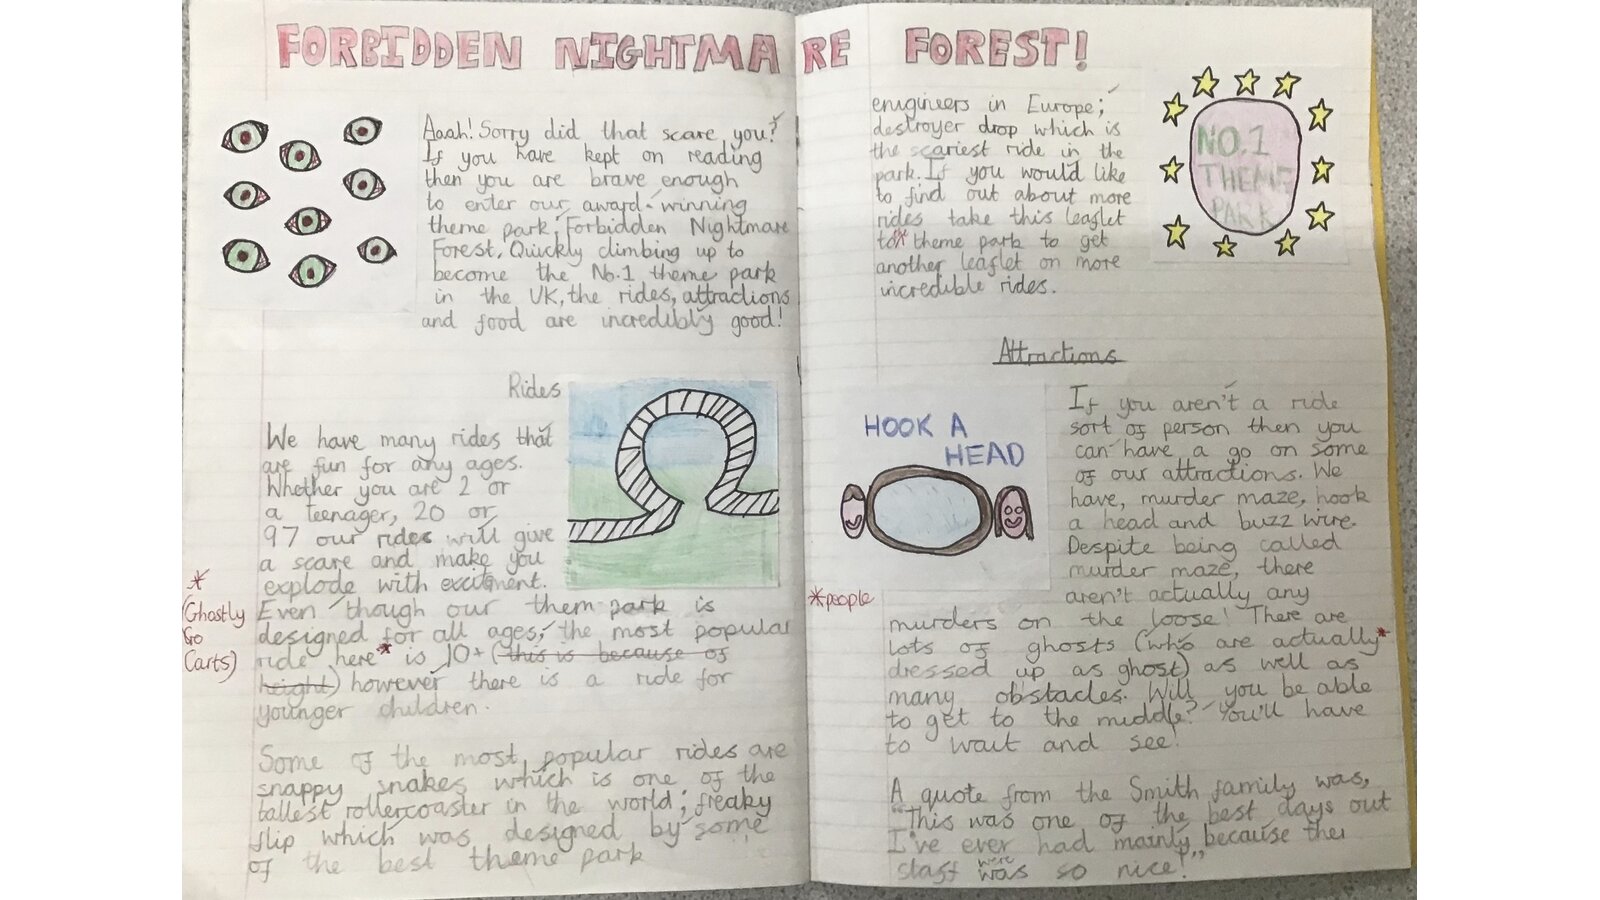 FORBIDDEN NIGHTMARE FOREST!
Aaah! Sorry did that scare you?
If you have kept on reading
then you are brave enough
to enter our award-winning
theme park; Forbidden Nightmare
Forest. Quickly climbing up to
become the No.1 theme park
in the UK, the rides, attractions
and food are incredibly good!
Rides
We have many rides that
are fun for any ages.
Whether you are 2 or
a teenager, 20 or
97 our rides will give
a scare and make you
explode with excitment.
Even though our them park is
designed for all ages, the most popular
ride here* is 10+ (this is because of
height) however there is a ride for
younger children.
*
(Ghostly
Go
Carts)
Some of the most popular rides are
snappy snakes which is one of the
tallest rollercoaster in the world; freaky
flip which was designed by some
of the best theme park
enugineers in Europe;
destroyer drop which is
the scariest ride in the
park. If you would like
to find out about more
rides take this leaflet
to the theme park to get
another leaflet on more
incredible rides.
NO.1
THEME
PARK
Attractions
HOOK A
HEAD
If you aren't a ride
sort of person then you
can have a go on some
of our attractions. We
have, murder maze, hook
a head and buzz wire.
Despite being called
murder maze, there
aren't actually any
murders on the loose! There are
lots of ghosts (who are actually*
dressed up as ghost) as well as
many obstacles. Will you be able
to get to the middle? You'll have
to wait and see!
*people
A quote from the Smith family was,
"This was one of the best days out
I've ever had mainly because
staff were was so nice!"